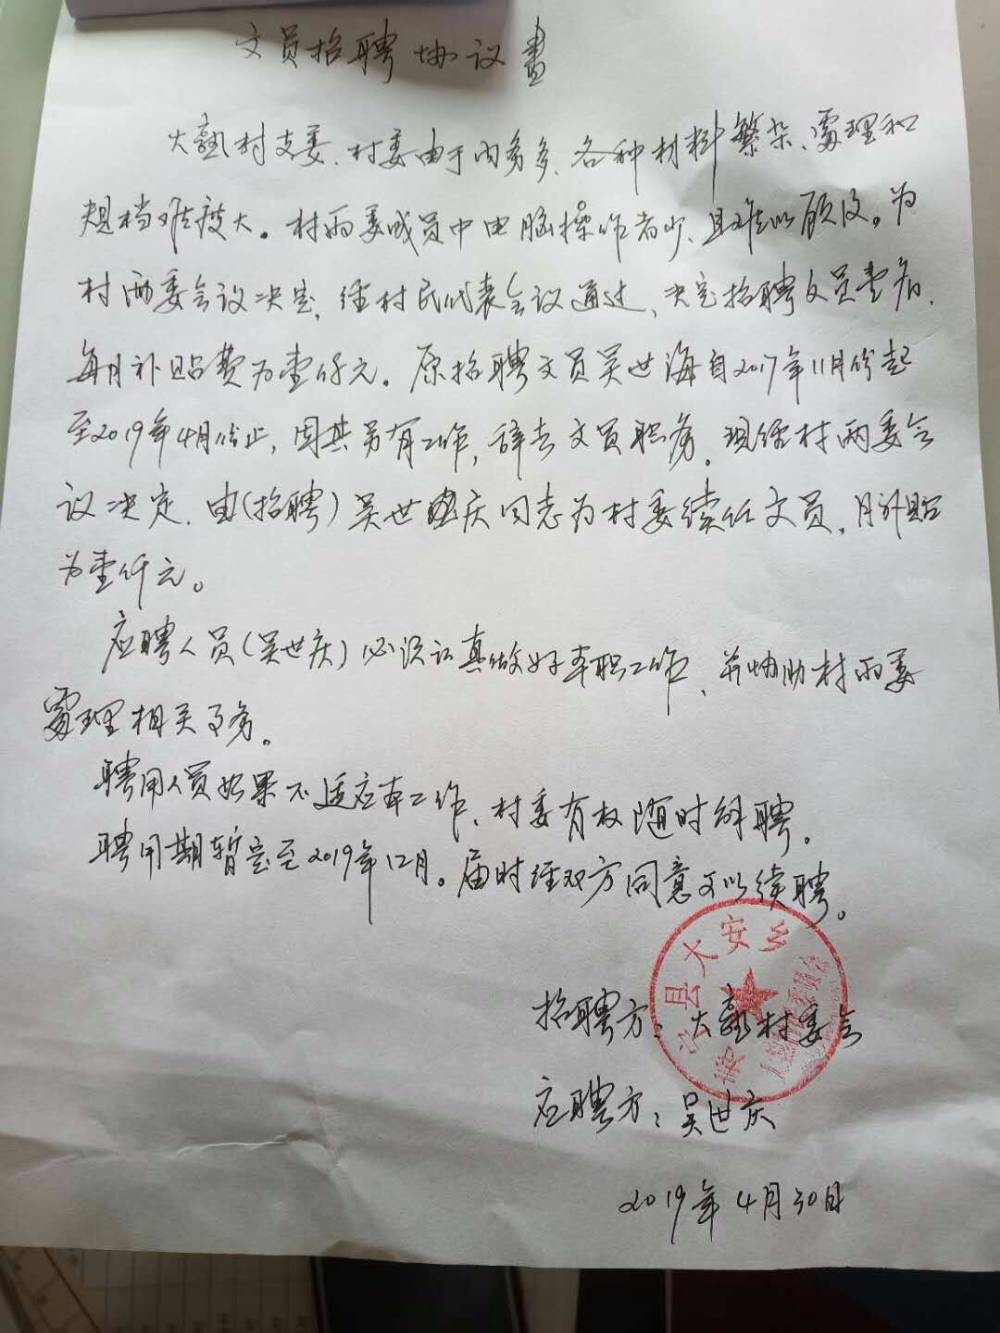 文员招聘协议書
大熟村支委、村委由于内务多、各种材料繁杂、處理和
规档难度大。村两委成员中电脑操作者少、且难以顾及。为
村两委会议决定,经村民代表会议通过、决定招聘文员壹名.
每月补贴费为壹仟元。原招聘文员吴世海自2017年11月份起
至2019年4月份止,因其另有工作,辞去文员职务。现经村两委会
议决定.由(招聘)吴世庆同志为村委续任文员,月补贴
为壹仟元。
应聘人员(吴世庆)必须认真做好本职工作、并协助村两委
處理相关事务。
聘用人员如果不适应本工作、村委有权随时解聘。
聘用期暂定至2019年12月。届时经双方同意可以续聘。
县大安乡
招聘方:大熟村委会
应聘方:吴世庆
2019年4月30日